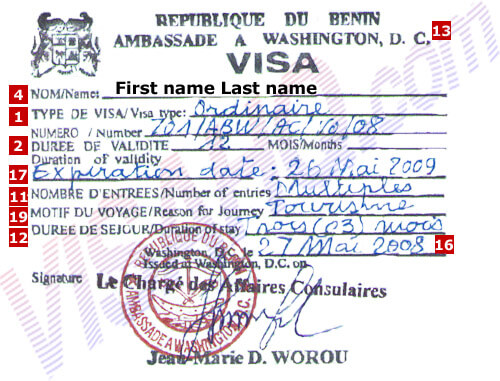 REPUBLIQUE DU BENIN
AMBASSADE A WASHINGTON, D. C. 13
VISA
4 NOM/Name: First name Last name
1 TYPE DE VISA/Visa type: Ordinaire
NUMERO / Number 701/ABW/AC/10/08
2 DUREE DE VALIDITE 12 MOIS/Months
Duration of validity
17 Expiration date: 26 Mai 2009
11 NOMBRE D'ENTREES/Number of entries Multiples
19 MOTIF DU VOYAGE/Reason for Journey Tourisme
12 DUREE DE SEJOUR/Duration of stay Trois (03) mois
Washington, D.C. le 27 Mai 2008 16
Issued in Washington, D.C. on
Signature Le Chargé des Affaires Consulaires
REPUBLIQUE DU BENIN
AMBASSADE A WASHINGTON, D.C.
Jean-Marie D. WOROU